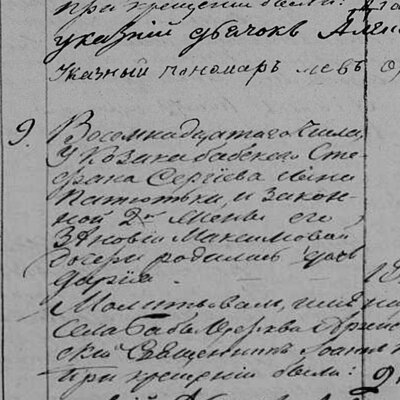 при крещеніи были:
указній дьячокъ
Указный пономарь левъ
9.
Восомнадцатого числа,
у Козака бабского Сте-
фана Сергіева сына
и закон-
ной 2й жены его
Зѣновіи Максимовой
дочери родилась дочь
Дарія.
Молитвовалъ,
Села Бабы
скій Священникъ Іоаннъ
при крещеніи были: